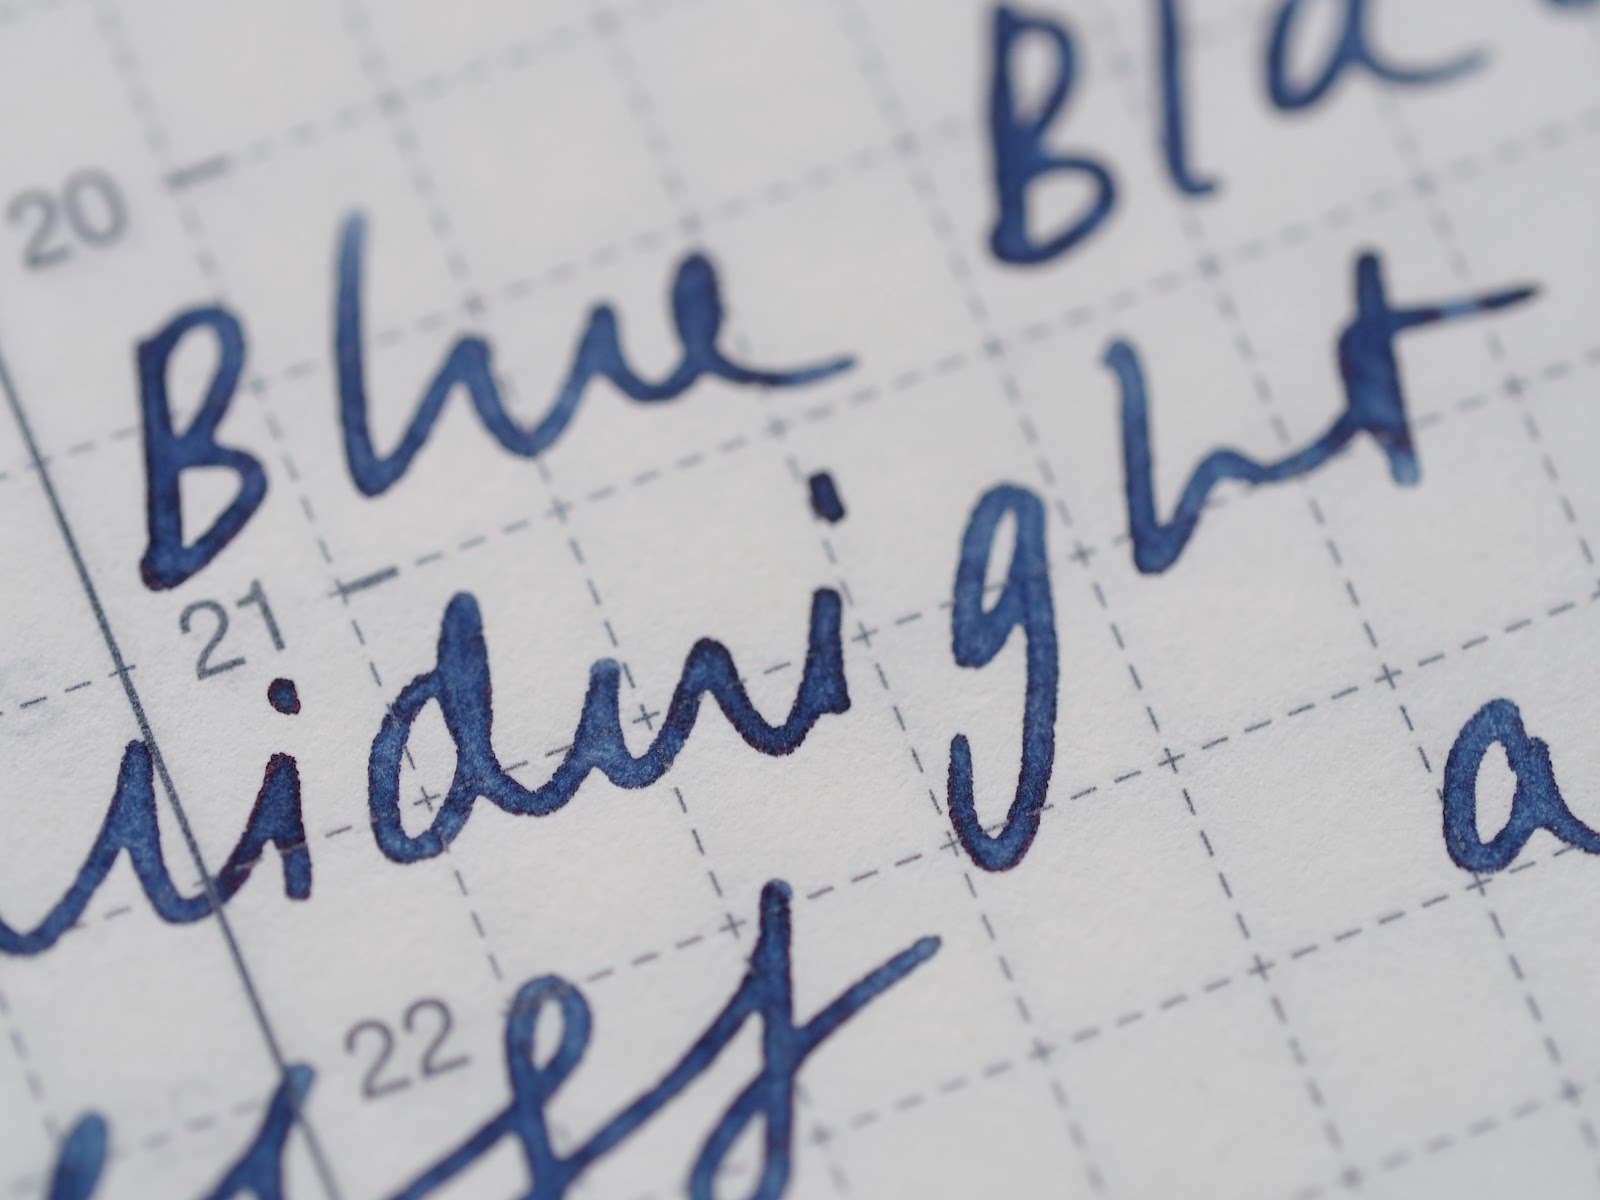 20
Blue Bla
21
midnight a
22